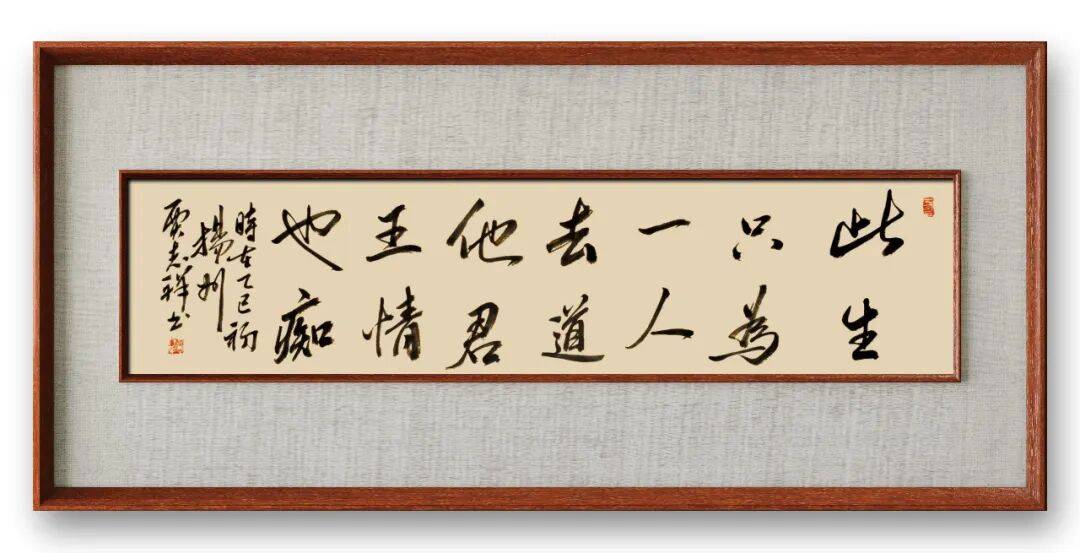 此生
只為
一人
去道
他君
王情
也痴
時在乙巳初
揚州
賈志祥书